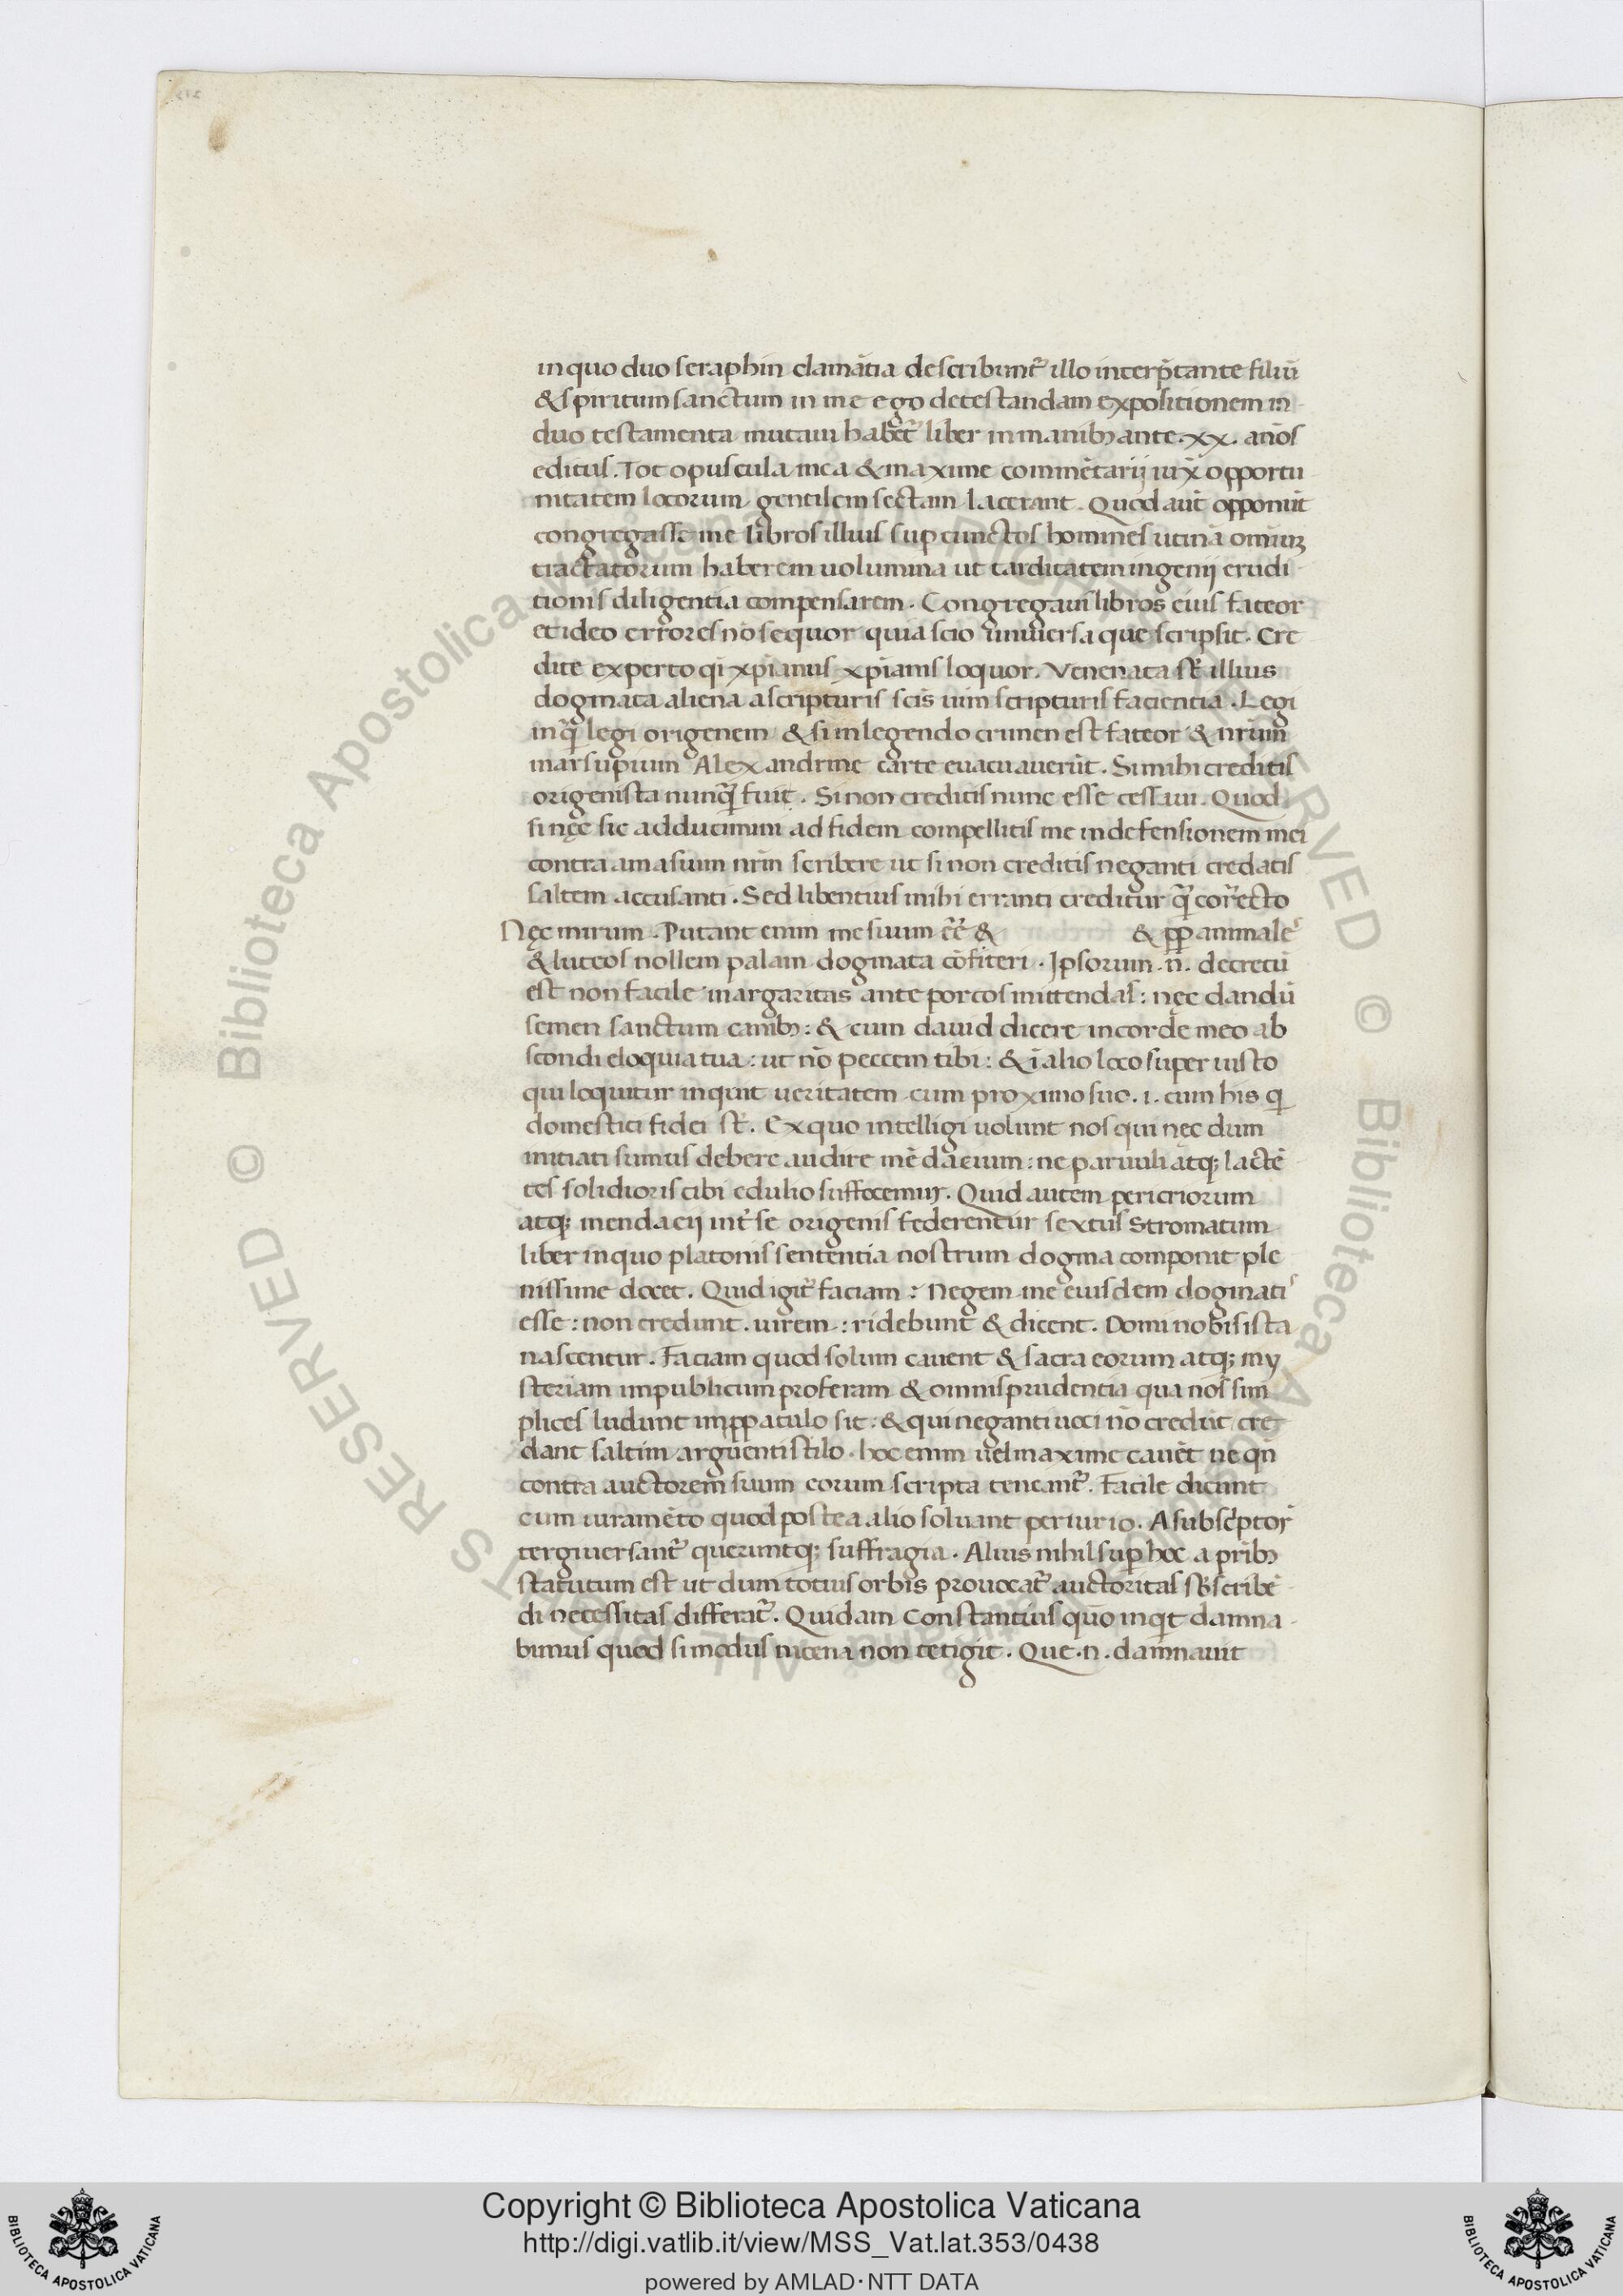 in quo duo seraphin clamātia describunt᷑ illo interp̄tante filiū
& spiritum sanctum in me ego detestandam expositionem in
duo testamenta mutaui habet᷑ liber in manibꝫ ante .xx. años
editus. Tot opuscula mea & maxime commētarij iux̄ opportu
nitatem locorum gentilem sectam lacerant. Quod aūt opponūt
congregasse me libros illius sup cunctos homines utinā omniuꝫ
tractatorum haberem uolumina ut tarditatem ingenij erudi
tionis diligentia compensarem. Congregaui libros eius fateor
et ideo errores nō sequor quia scio uniuersa que scripsit. Cre
dite experto qi xp̄ianus xp̄ianis loquor. Venenata st̄ illius
dogmata aliena a scripturis scīs uim scripturis facientia. Legi
inq̄ legi origenem & si in legendo crimen est fateor & nr̄um
marsupium Alexandrine carte euacuauerūt. Si mihi creditis
origenista nunq̄ fuit. Si non creditis nunc esse cessaui. Quod
si nęc sic adducimini ad fidem compellitis me in defensionem mei
contra amasium nr̄m scribere ut si non creditis neganti credatis
saltem accusanti. Sed libentius mihi erranti creditur q̄ cor̄ecto
Nęc mirum. Putant enim me suum eē & & ꝓꝑ animales
& luteos nollem palam dogmata cōfiteri. Ipsorum .n. decretū
est non facile margaritas ante porcos mittendas: nęc dandū
semen sanctum canibꝫ: & cum dauid dicere in corde meo ab
scondi eloquia tua: ut nō peccem tibi: & ī alio loco super iusto
qui loquitur inquit ueritatem cum proximo suo .i. cum his q̄
domestici fidei st̄. Ex quo intelligi uolunt nos qui nęc dum
initiati sumus debere audire mēdacium: ne paruuli atqꝫ lactē
tes solidioris cibi edulio suffocemur. Quid autem periuriorum
atqꝫ mendacij int̄ se origenis federentur sextus Stromatum
liber in quo platonis sententia nostrum dogma componit ple
nissime docet. Quid igit᷑ faciam: Negem me eiusdem dogmatis
esse: non credunt. uirem: ridebunt & dicent. Domi nobis ista
nascentur. Faciam quod solum cauent & sacra eorum atqꝫ my
steriam in publicum proferam & omnis prudentia qua nos sim
plices ludunt in ꝓpatulo sit: & qui neganti uoci nō credūt cre
dant saltim arguenti stilo. hoc enim uel maxime cauēt ne qn̄
contra auctorem suum eorum scripta teneant᷑. Facile dicunt
cum iuramēto quod postea alio soluant periurio. A subscptor
tergiuersant᷑ queruntqꝫ suffragia. Alius nihil sup hoc a pribꝫ
statutum est ut dum totius orbis prouocat᷑ auctoritas sb̄scribē
di necessitas differat᷑. Quidam Constantius quō inqt damna
bimus quod sinodus nicena non tetigit. Que .n. damnauit
Copyright © Biblioteca Apostolica Vaticana
http://digi.vatlib.it/view/MSS_Vat.lat.353/0438
powered by AMLAD·NTT DATA